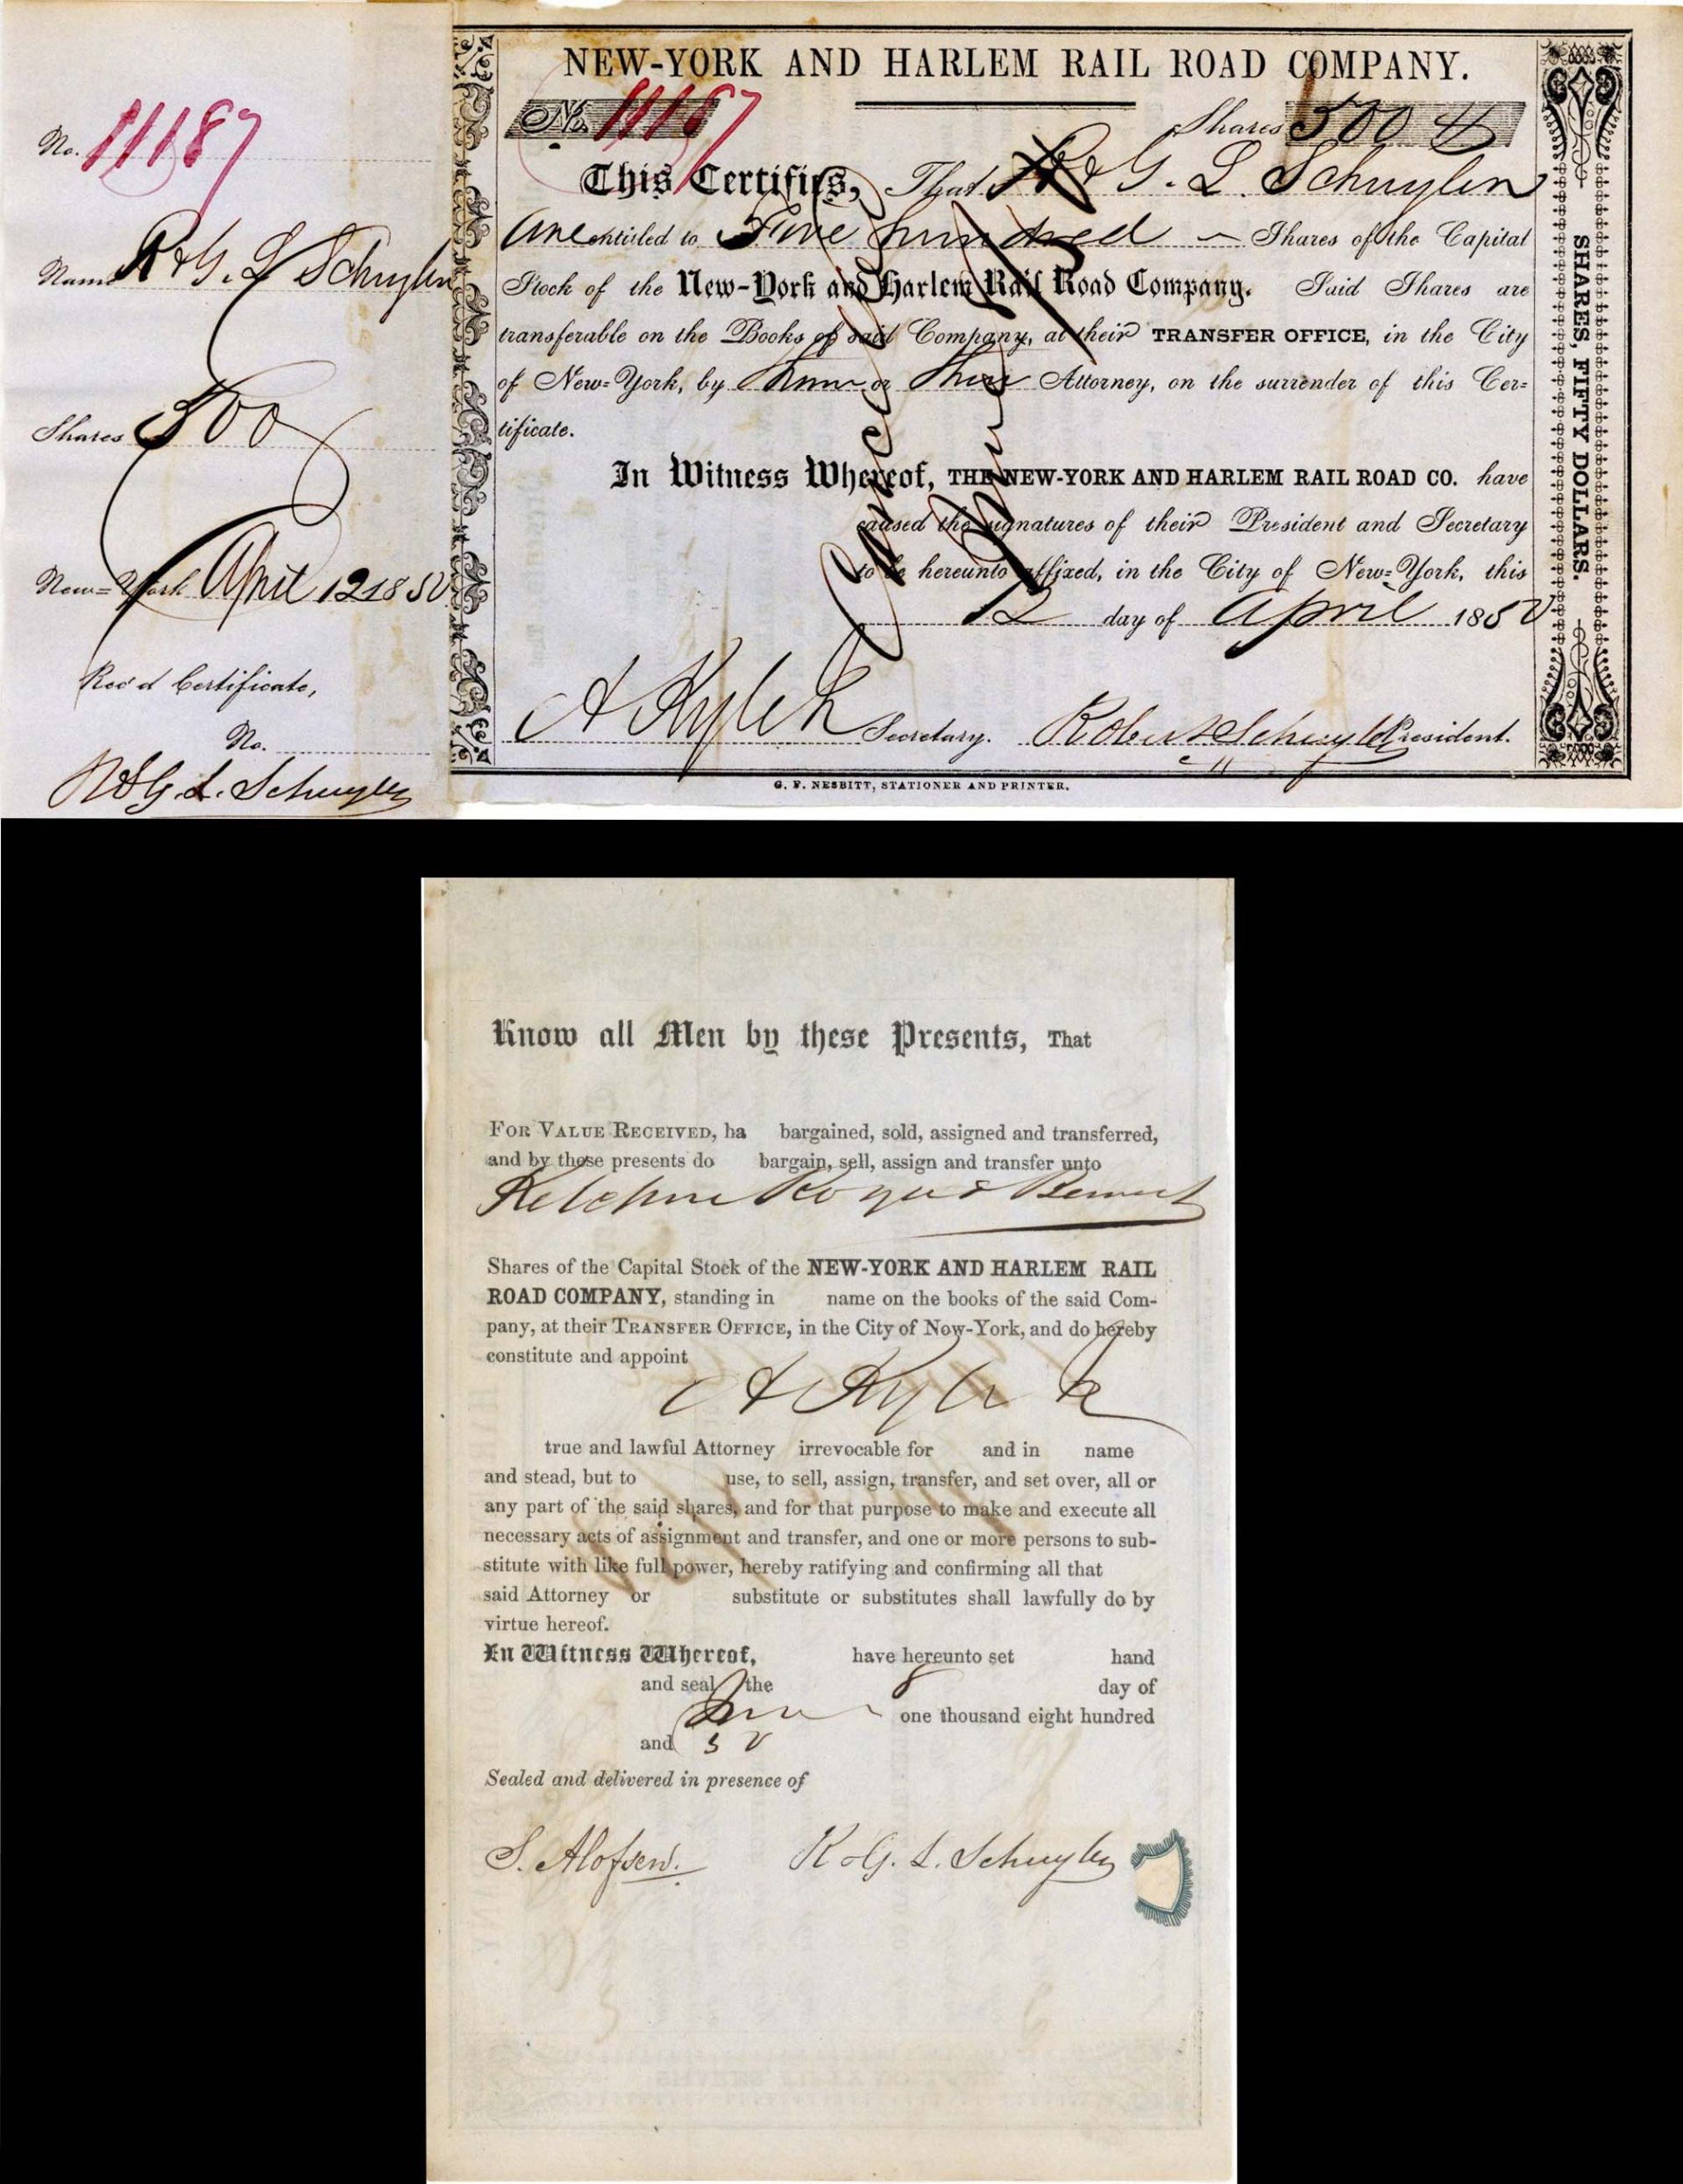 No. 11187
Name R & G. L Schuyler
Shares 500
New-York April 12 1850
Rec'd Certificate,
No.
R & G. L. Schuyler
NEW-YORK AND HARLEM RAIL ROAD COMPANY.
No. 11187 Shares 500
This Certifies, That R & G. L. Schuyler
are entitled to Five hundred Shares of the Capital
Stock of the New-York and Harlem Rail Road Company. Said Shares are
transferable on the Books of said Company, at their TRANSFER OFFICE, in the City
of New-York, by them or their Attorney, on the surrender of this Cer-
tificate.
In Witness Whereof, THE NEW-YORK AND HARLEM RAIL ROAD CO. have
caused the signatures of their President and Secretary
to be hereunto affixed, in the City of New-York, this
12 day of April 1850
Secretary. Robert Schuyler President.
Cancelled
SHARES, FIFTY DOLLARS.
G. F. NESBITT, STATIONER AND PRINTER.
Know all Men by these Presents, That
FOR VALUE RECEIVED, ha bargained, sold, assigned and transferred,
and by these presents do bargain, sell, assign and transfer unto
Ketchum Rogers & Bement
Shares of the Capital Stock of the NEW-YORK AND HARLEM RAIL
ROAD COMPANY, standing in name on the books of the said Com-
pany, at their TRANSFER OFFICE, in the City of New-York, and do hereby
constitute and appoint
true and lawful Attorney irrevocable for and in name
and stead, but to use, to sell, assign, transfer, and set over, all or
any part of the said shares, and for that purpose to make and execute all
necessary acts of assignment and transfer, and one or more persons to sub-
stitute with like full power, hereby ratifying and confirming all that
said Attorney or substitute or substitutes shall lawfully do by
virtue hereof.
In Witness Whereof, have hereunto set hand
and seal the 8 day of
one thousand eight hundred
and 50
Sealed and delivered in presence of
S. Alofsen. R & G. L. Schuyler